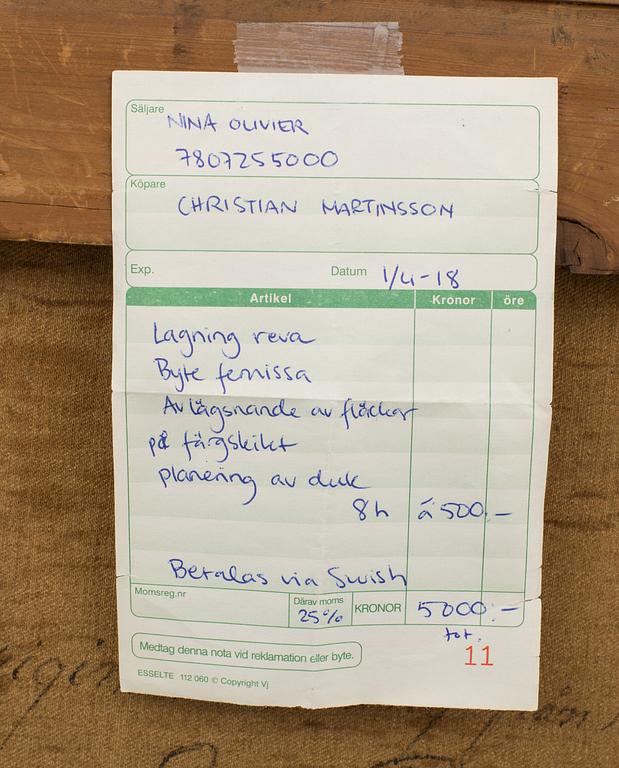 Säljare NINA OLIVIER
7807255000
Köpare
CHRISTIAN MARTINSSON
Exp. Datum 1/4-18
Artikel Kronor öre
Lagning reva
Byte fernissa
Avlägsnande av fläckar
på färgskikt
planering av duk
8h á 500:-
Betalas via Swish
Momsreg.nr Därav moms 25% KRONOR 5000:-
tot.
11
Medtag denna nota vid reklamation eller byte.
ESSELTE 112 060 © Copyright Vj